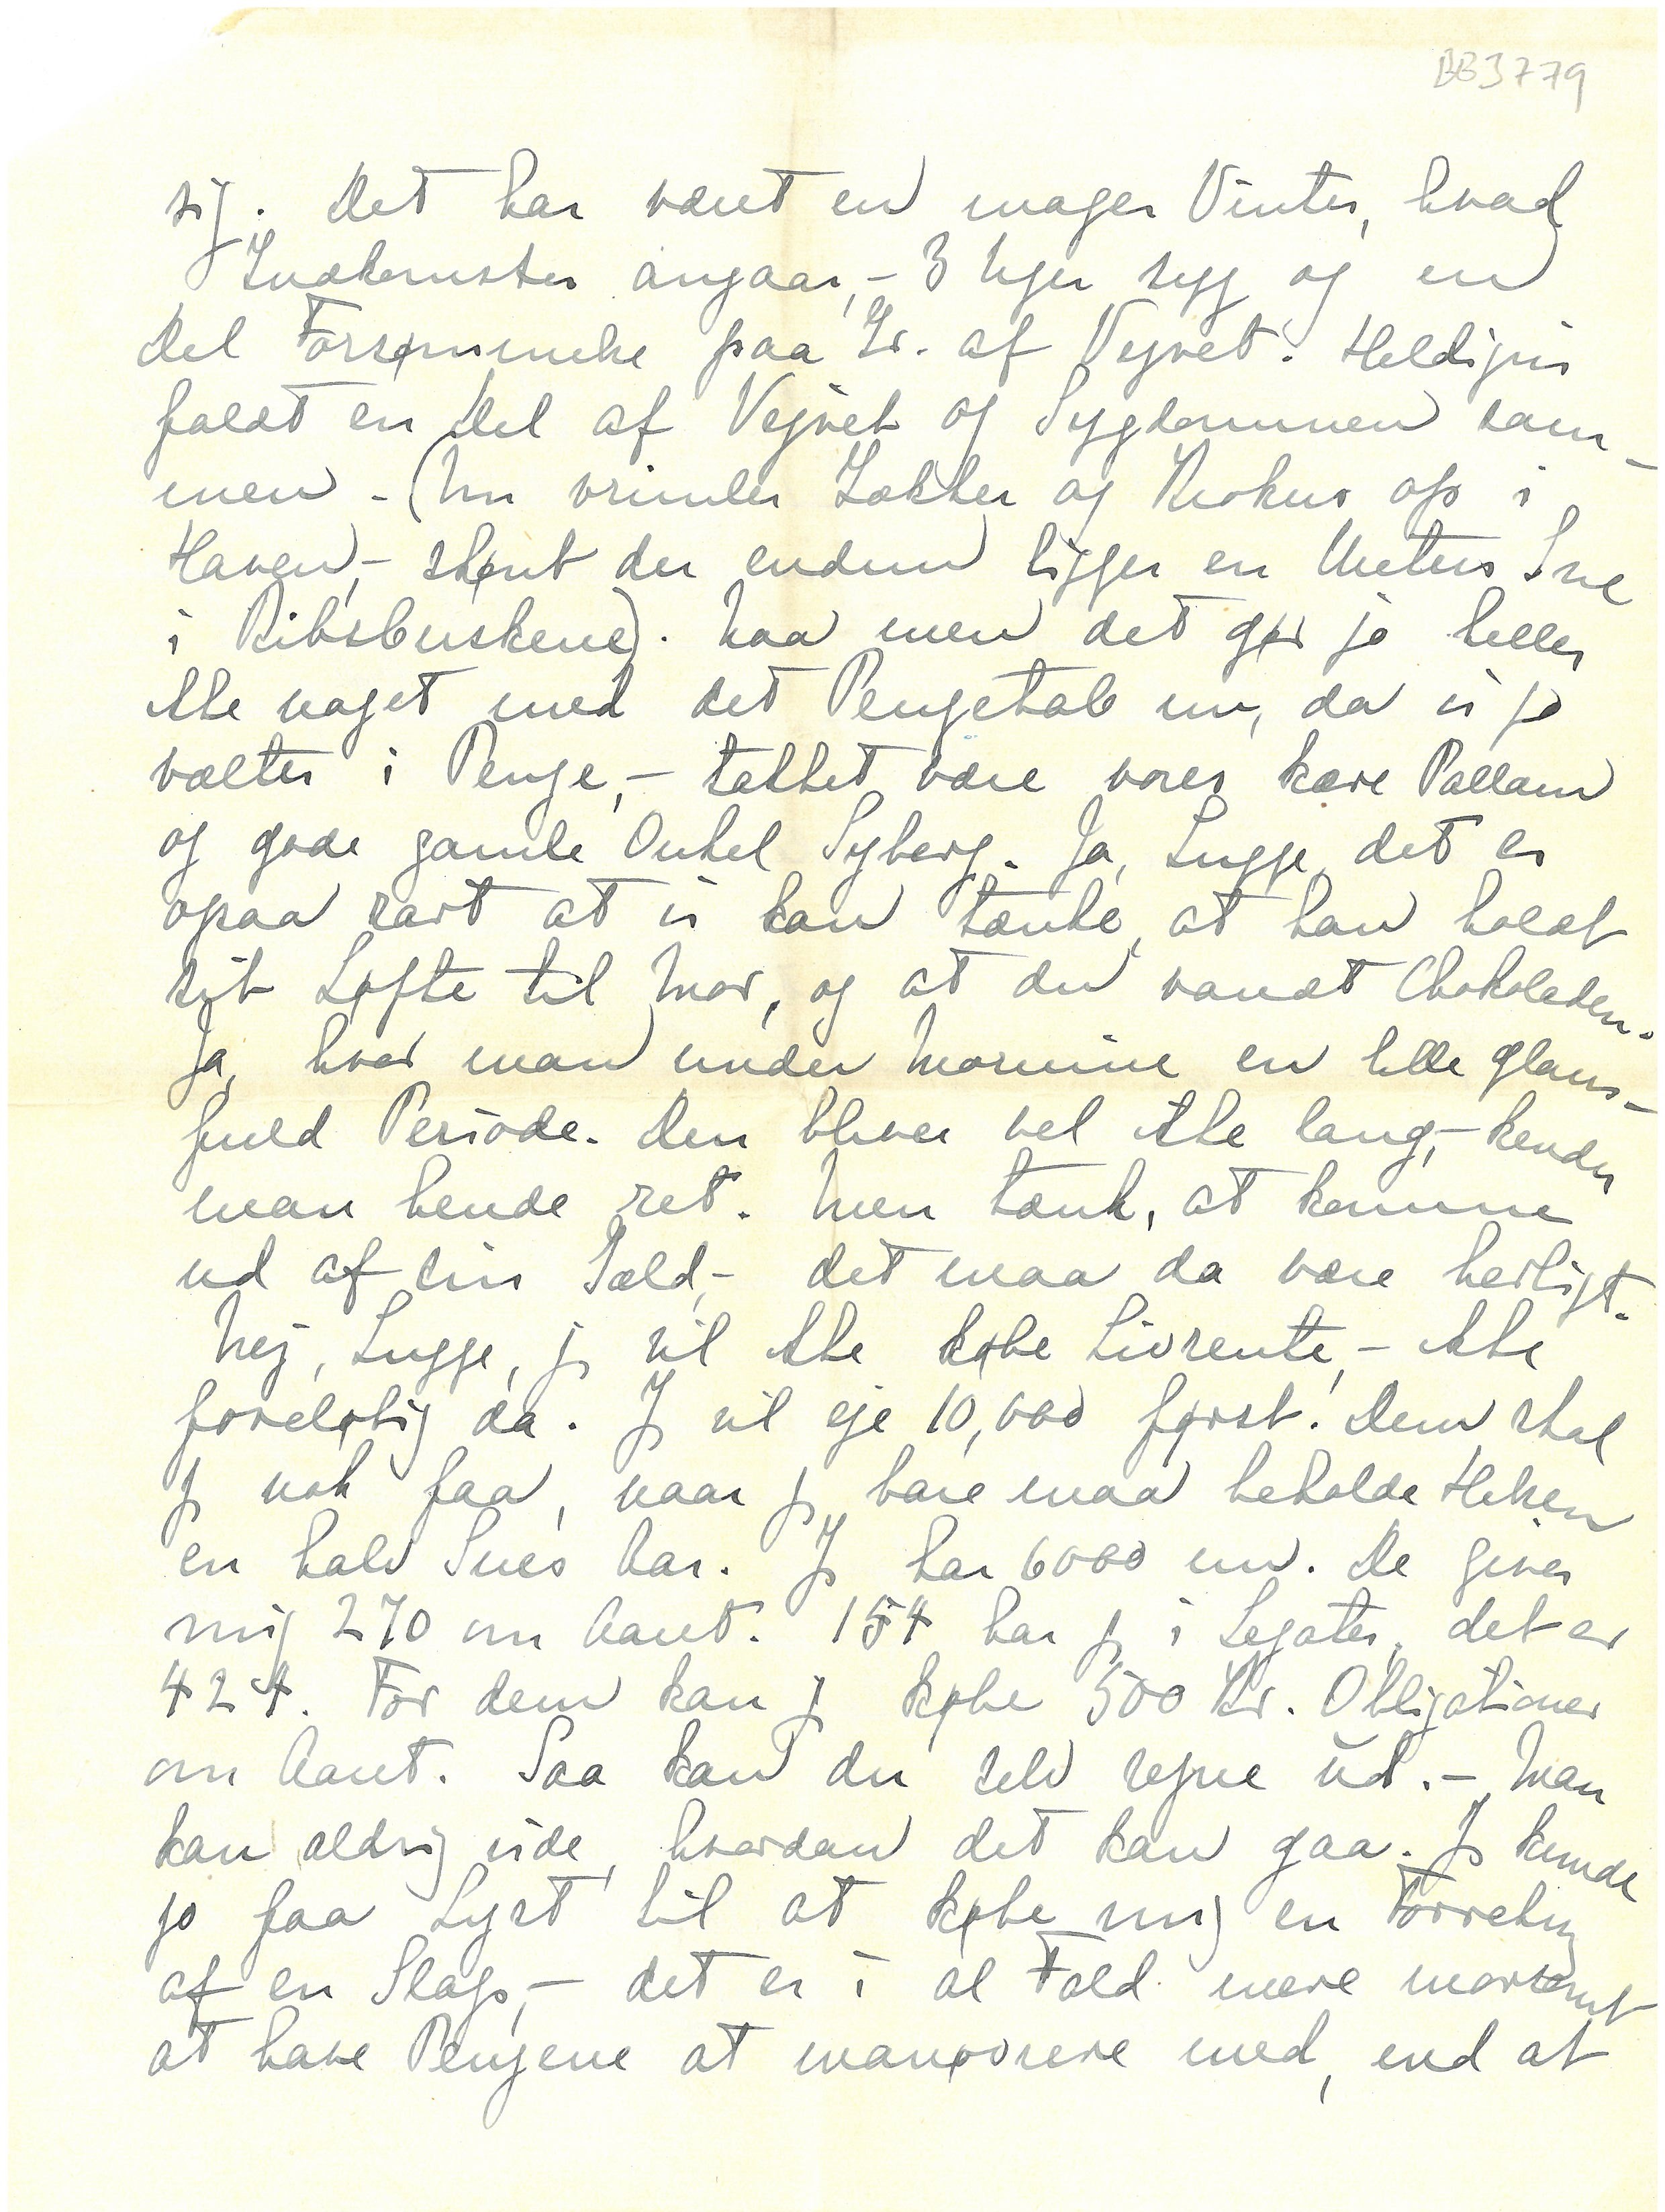 BB3779
sig. Det har været en mager Vinter, hvad
Indkomster angaar, - 3 Uger syg og en
Del Forsømmelse paa Gr. af Vejret. Heldigvis
faldt en Del af Vejret og Sygdommen sam-
men - (Nu vrimler Gækker og Krokus op i
Haven, - skønt der endnu ligger en Meters Sne
i Ribsbuskene). Naa men det gør jo heller
ikke noget med det Pengetab nu, da vi jo
vælter i Penge, - takket være vores kære Pallam
og gode gamle Onkel Syberg. Ja, Lugge, det er
ogsaa rart at vi kan tænke, at han holdt
sit Løfte til Mor, og at du vandt Chokoladen.
Ja, hvor man under Mornine en lille glans-
fuld Periode. Den bliver vel ikke lang, - kender
man hende ret. Men tænk, at komme
ud af sin Gæld, - det maa da være herligt.
Nej, Lugge, jeg vil ikke købe Livrente, - ikke
foreløbig da. Jeg vil eje 10,000 først! Dem skal
jeg nok faa, naar jeg bare maa beholde Hilsen
en halv Snes Aar. Jeg har 6000 nu. De giver
mig 270 om Aaret. 154 har jeg i Legater, det er
424. For dem kan jeg købe 500 Kr. Obligationer
om Aaret. Saa kan du selv regne ud. - Man
kan aldrig vide, hvordan det kan gaa. Jeg kunde
jo faa Lyst til at købe mig en Forretning
af en Slags, - det er i al Fald mere morsomt
at have Pengene at manøvrere med, end at